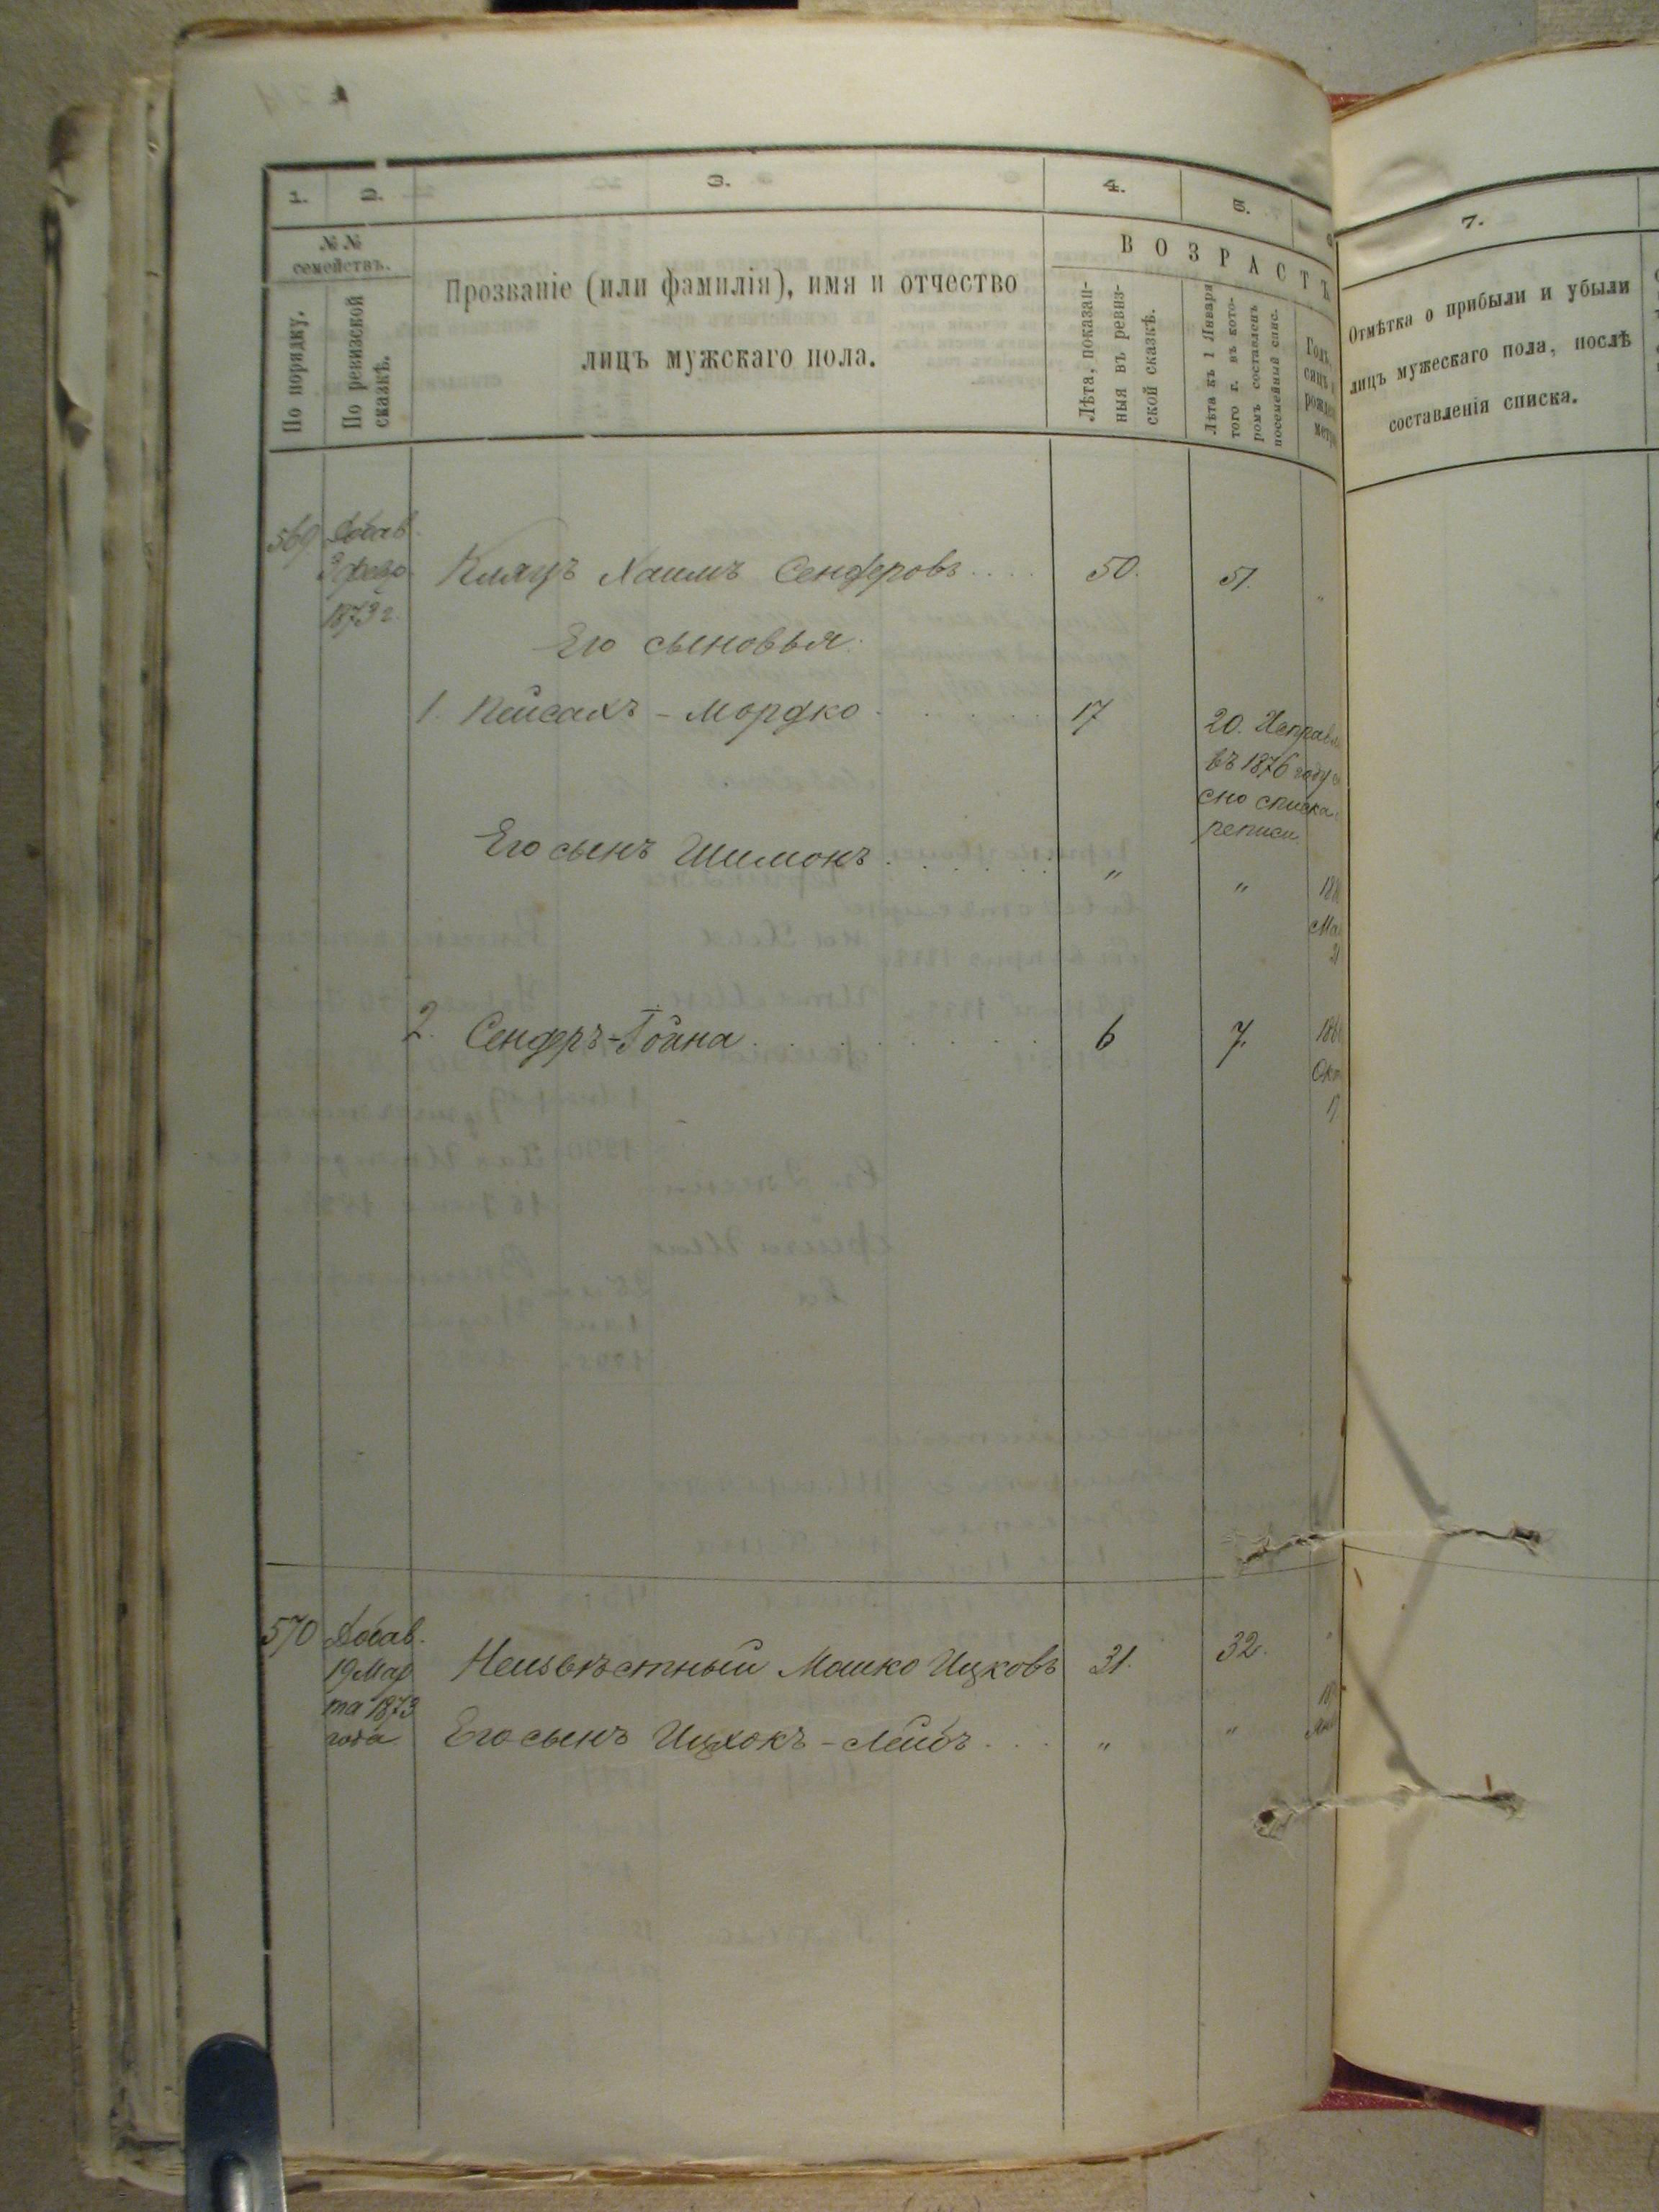 1.
2.
3.
4.
5.
№ №
семействъ.
По порядку.
По ревизской
сказкѣ.
Прозваніе (или фамилія), имя и отчество
лицъ мужскаго пола.
ВОЗРАСТЪ
Лѣта, показан-
ныя въ ревиз-
ской сказкѣ.
Лѣта къ 1 Января
того г. въ кото-
ромъ составленъ
посемейный спис.
Годъ,
7.
Отмѣтка о прибыли и убыли
лицъ мужескаго пола, послѣ
составленія списка.
569
Добав.
1873 г.
Хаимъ Сендеровъ
50.
51.
"
Его сыновья:
1. Пейсахъ-Мордко
17
20. Исправл
въ 1876 году
сно списка
реписи
Его сынъ Шимонъ
"
"
2. Сендеръ-Іойна
6
7.
Окт
17
570
Добав.
19 Мар
та 1873
года
Неизвѣстный Мошко Ицковъ
31.
32.
"
Его сынъ Ицхокъ-Лейбъ
"
"